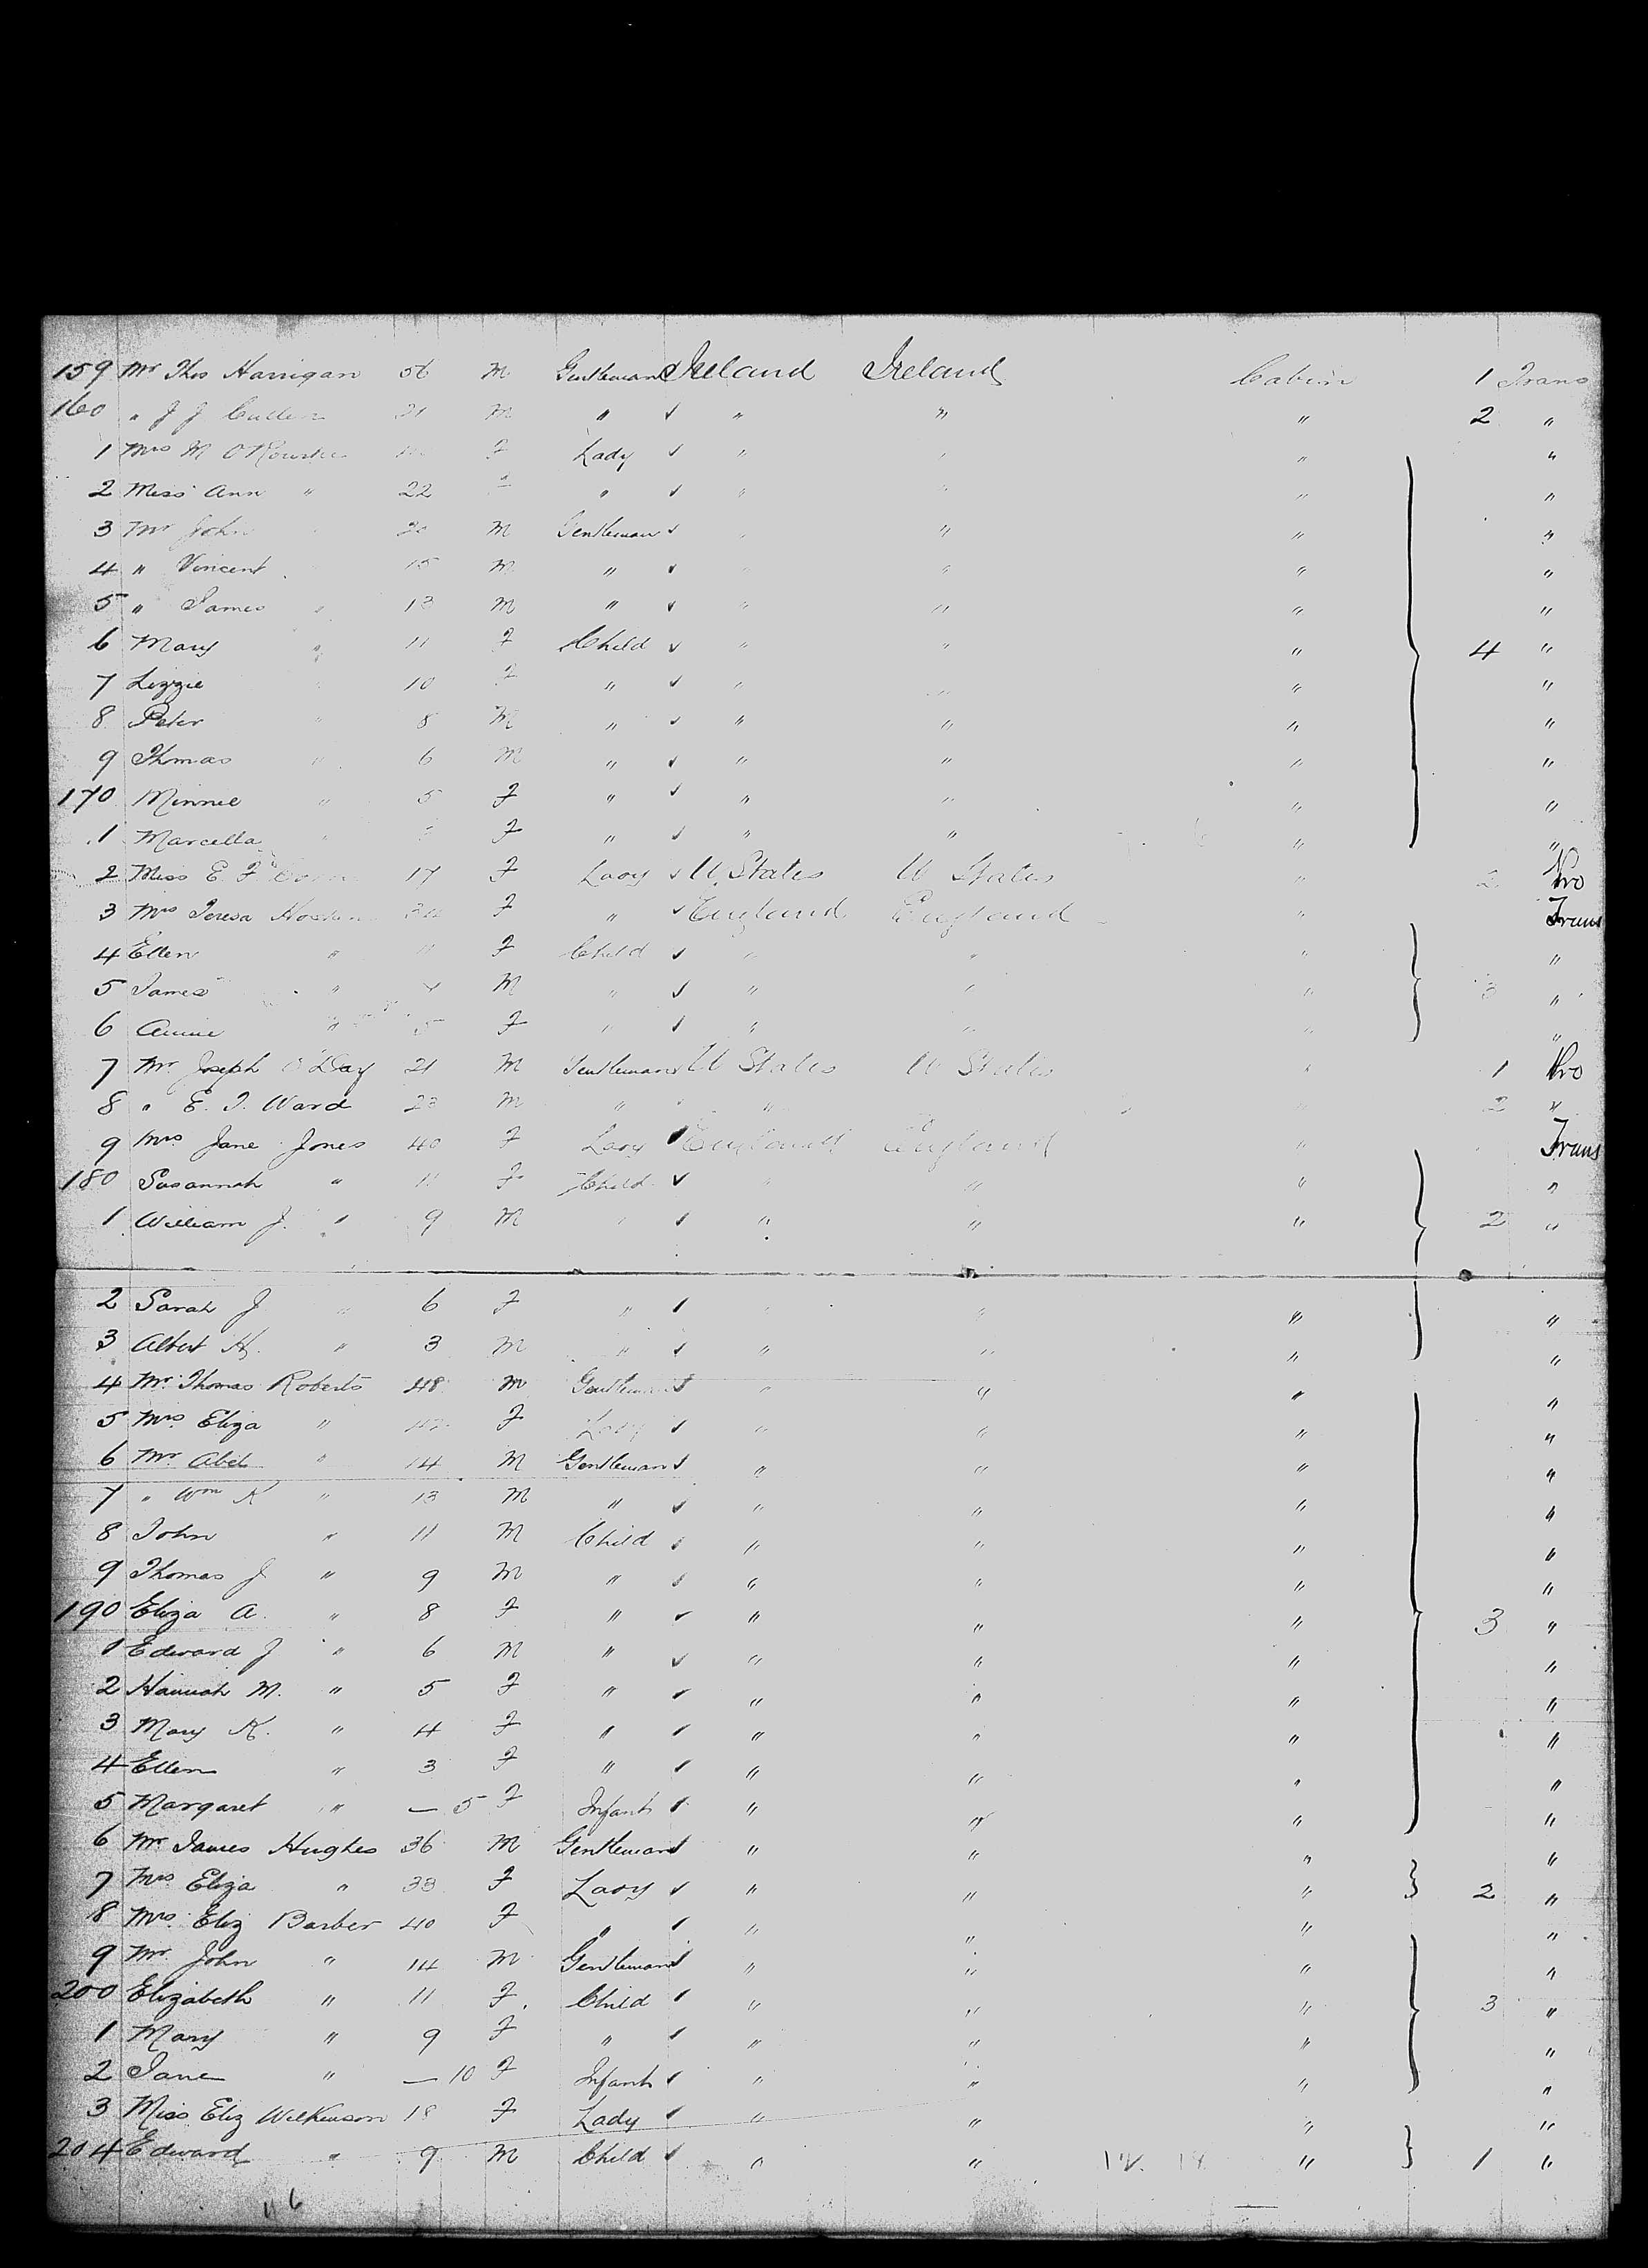 159 Mr Thos Harrigan 56 M Gentleman Ireland Ireland Cabin 1 Trans
160 " J J Cullen 21 M " " " " 2 "
1 Mrs M O'Rourke F Lady " " " "
2 Miss Ann " 22 " " " " "
3 Mr John 20 M Gentleman " " "
4 " Vincent 15 M " " " " "
5 " James " 13 M " " " " "
6 Mary " 11 F Child " " " 4 "
7 Lizzie " 10 F " " " " "
8 Peter " 8 M " " " " "
9 Thmas " 6 M " " " " "
170 Minnie " 5 F " " " " "
1 Marcella " F " " " " "
2 Miss E F 17 F Lady U States U States " 2 Pro
3 Mrs Teresa F " England England " Trans
4 Ellen " 11 F Child " " " "
5 James " M " " " " 3 "
6 Annie " 5 F " " " " "
7 Mr Joseph O'Day 21 M Gentleman U States U States " 1 Pro
8 " E. J. Ward 23 M " " " 2 "
9 Mrs Jane Jones 40 F Lady England England " Trans
180 Susannah " 11 F Child " " " "
1 William J. " 9 M " " " " 2 "
2 Sarah J " 6 F " " " " "
3 Albert H. " 3 M " " " " "
4 Mr Thomas Roberts 48 M Gentleman " " " "
5 Mrs Eliza " 42 F Lady " " " "
6 Mr Abel " 14 M Gentleman " " " "
7 " Wm K " 13 M " " " " "
8 John " 11 M Child " " " "
9 Thomas J " 9 M " " " " "
190 Eliza A. " 8 F " " " " 3 "
1 Edward J " 6 M " " " " "
2 Hannah M. " 5 F " " " " "
3 Mary K. " 4 F " " " " "
4 Ellen " 3 F " " " " "
5 Margaret " — 5 F Infant " " " "
6 Mr James Hughes 36 M Gentleman " " " "
7 Mrs Eliza " 33 F Lady " " " 2 "
8 Mrs Eliz Barber 40 F " " " " "
9 Mr John " 14 M Gentleman " " " "
200 Elizabeth " 11 F Child " " " 3 "
1 Mary " 9 F " " " " "
2 Jane " — 10 F Infant " " " "
3 Miss Eliz Wilkinson 18 F Lady " " " "
204 Edward " 9 M Child " " " 1 "